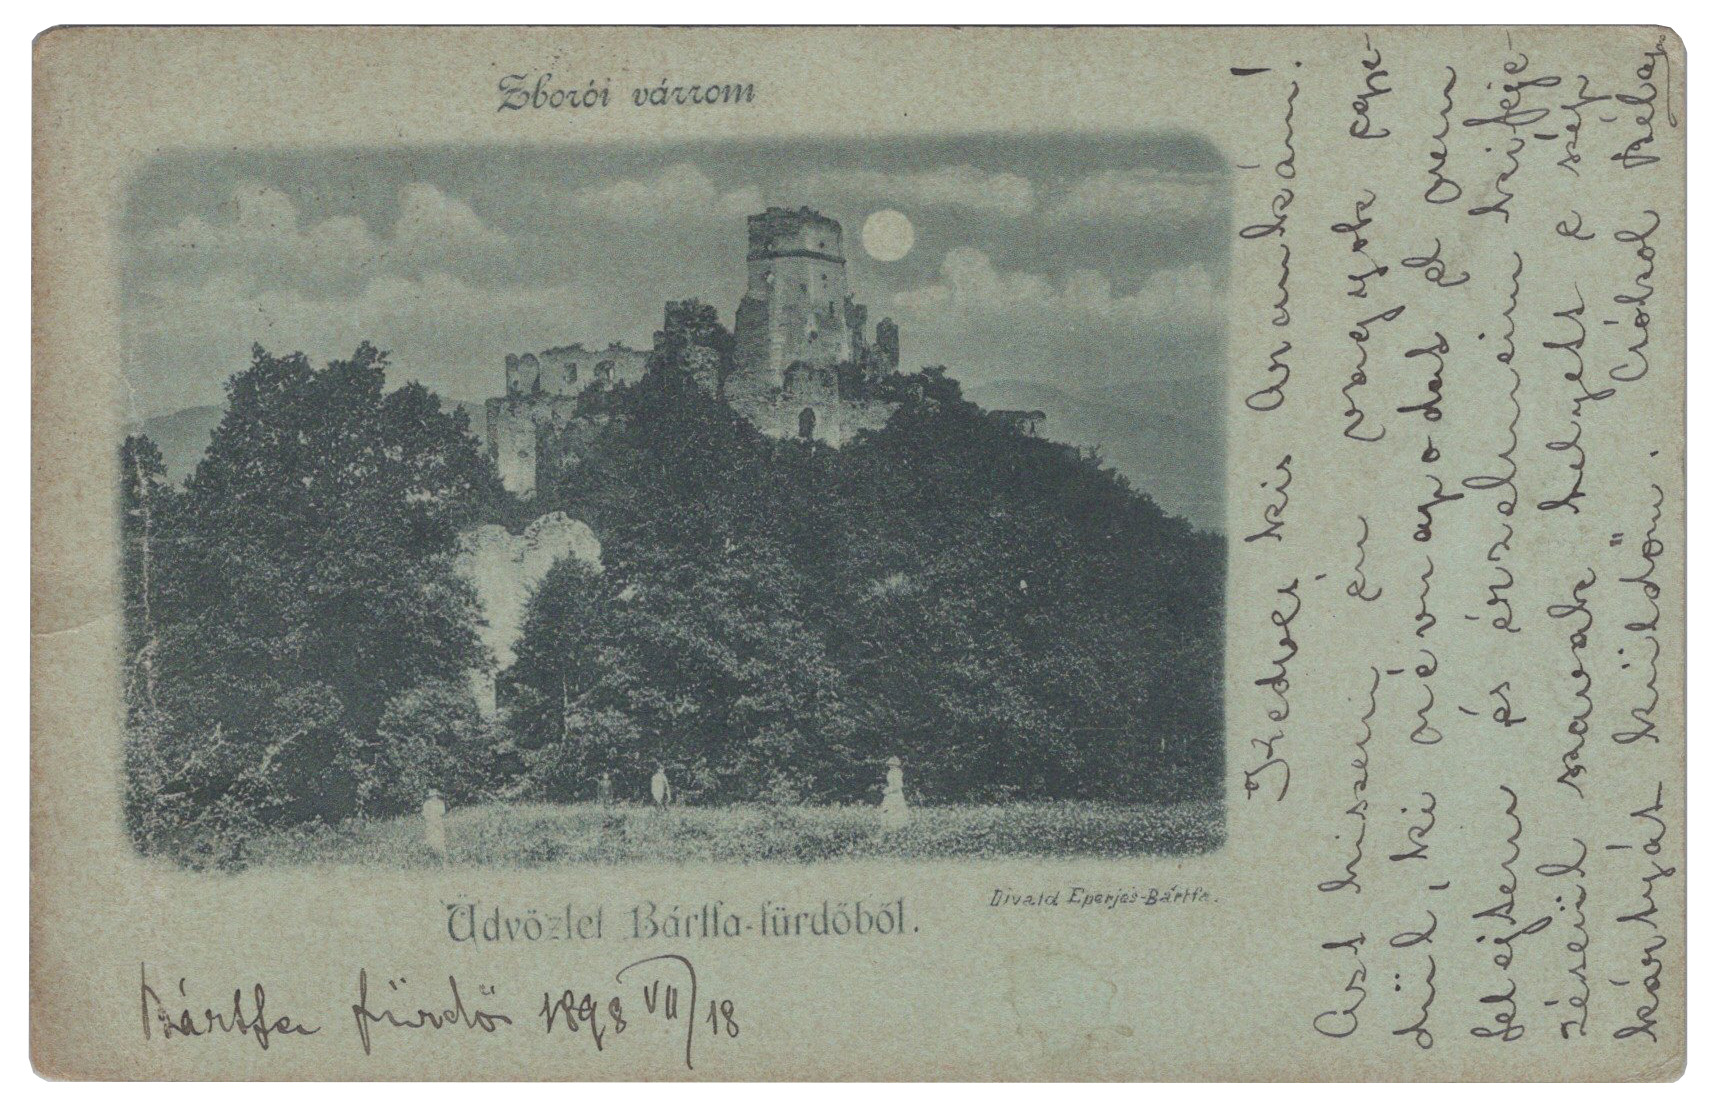 Zborói várrom
Üdvözlet Bártfa-fürdőből.
Divald Eperjes-Bártfa.
Bártfa fürdő 1898 VII/18
Kedves kis Arankám!
Azt hiszem én vagyok egye-
dül, ki névnapodat el nem
felejtem és érzelmeim kifeje-
zéséül szavak helyett e szép
kártyát küldöm. Csókol Béla